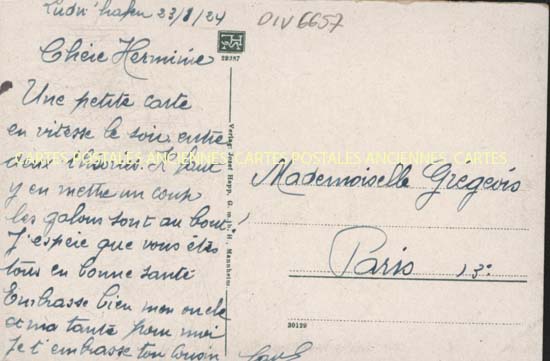 Ludw'hafen 23/8/24
DIV6657
Chère Herminie
Une petite carte
en vitesse le soir, entre
deux théories. Il faut
y en mettre un coup
les galons sont au bout!
J'espère que vous êtes
tous en bonne santé
Embrasse bien mon oncle
et ma tante pour moi
Je t'embrasse ton cousin
Mademoiselle Gregeois
Paris 13e
28287
Verlag: Josef Hepp, G. m. b. H., Mannheim.
30129
CARTES POSTALES ANCIENNES CARTES POSTALES ANCIENNES CARTES